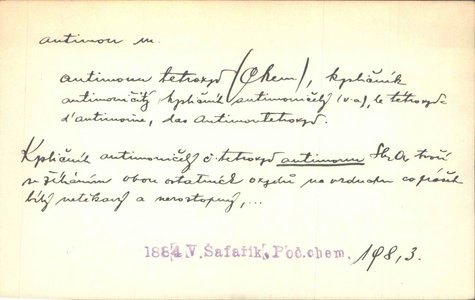 antimon m.
antimonu tetroxyd (Chem.), kysličník
antimoničitý kysličník antimoničelý (v-a), le tétroxyde
d'antimoine, das Antimontetroxyd.
Kysličník antimoničelý či tetroxyd antimonu Sb2O4 tvoří
se žíháním obou ostatních oxydů na vzduchu co prášek
bílý netěkavý a neroztopný,...
1884 V. Šafařík, Poč.chem. 198,3.